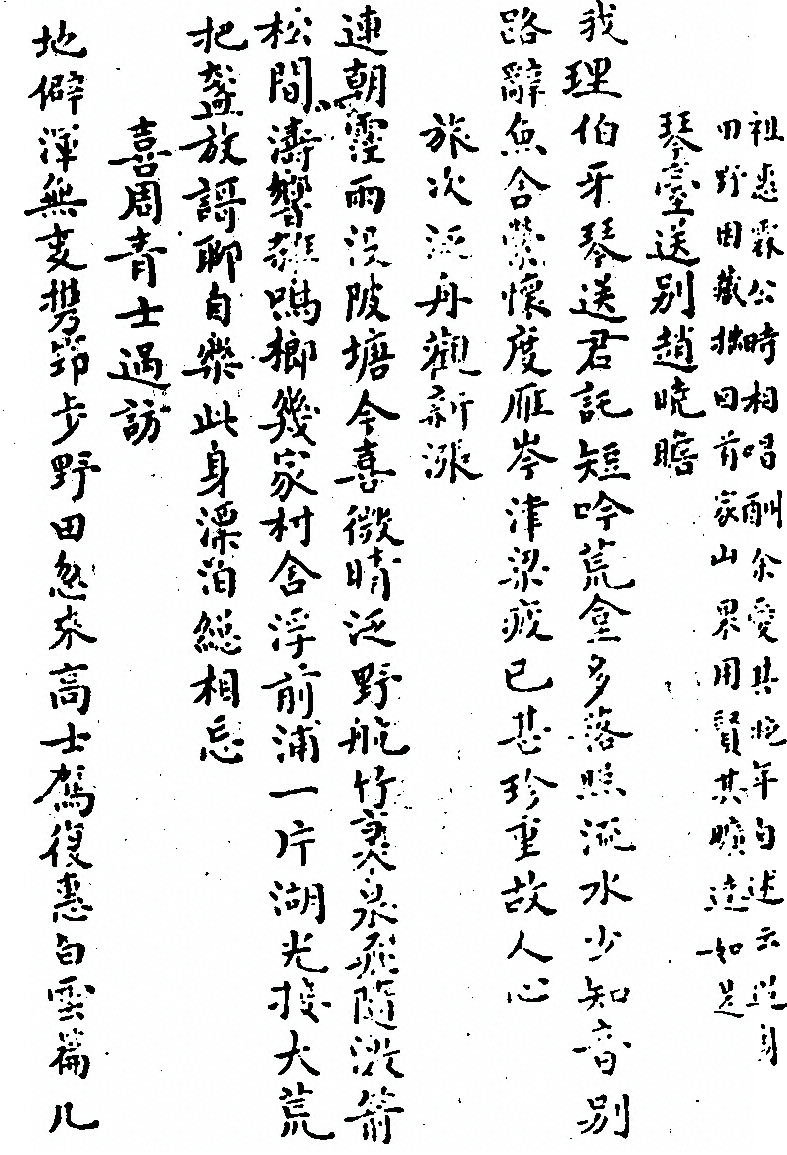 祖惠霖公時相唱酬余愛其晚年自述云逃身
田野田藏拙回首家山累用賢其曠達如是
琴臺送別趙曉瞻
我理伯牙琴送君託短吟荒臺多落照流水少知音別
路辭魚舍縈懷度雁岑津梁疲已甚珍重故人心
旅次泛舟觀新漲
連朝靈雨沒陂塘今喜微晴泛野航竹裏泉飛隨激箭
松間濤響雜鳴榔幾家村舍浮前浦一片湖光接大荒
把盞放謌聊自樂此身漂泊總相忘
喜周青士過訪
地僻渾無事攜笻步野田忽來高士駕復惠白雲篇几